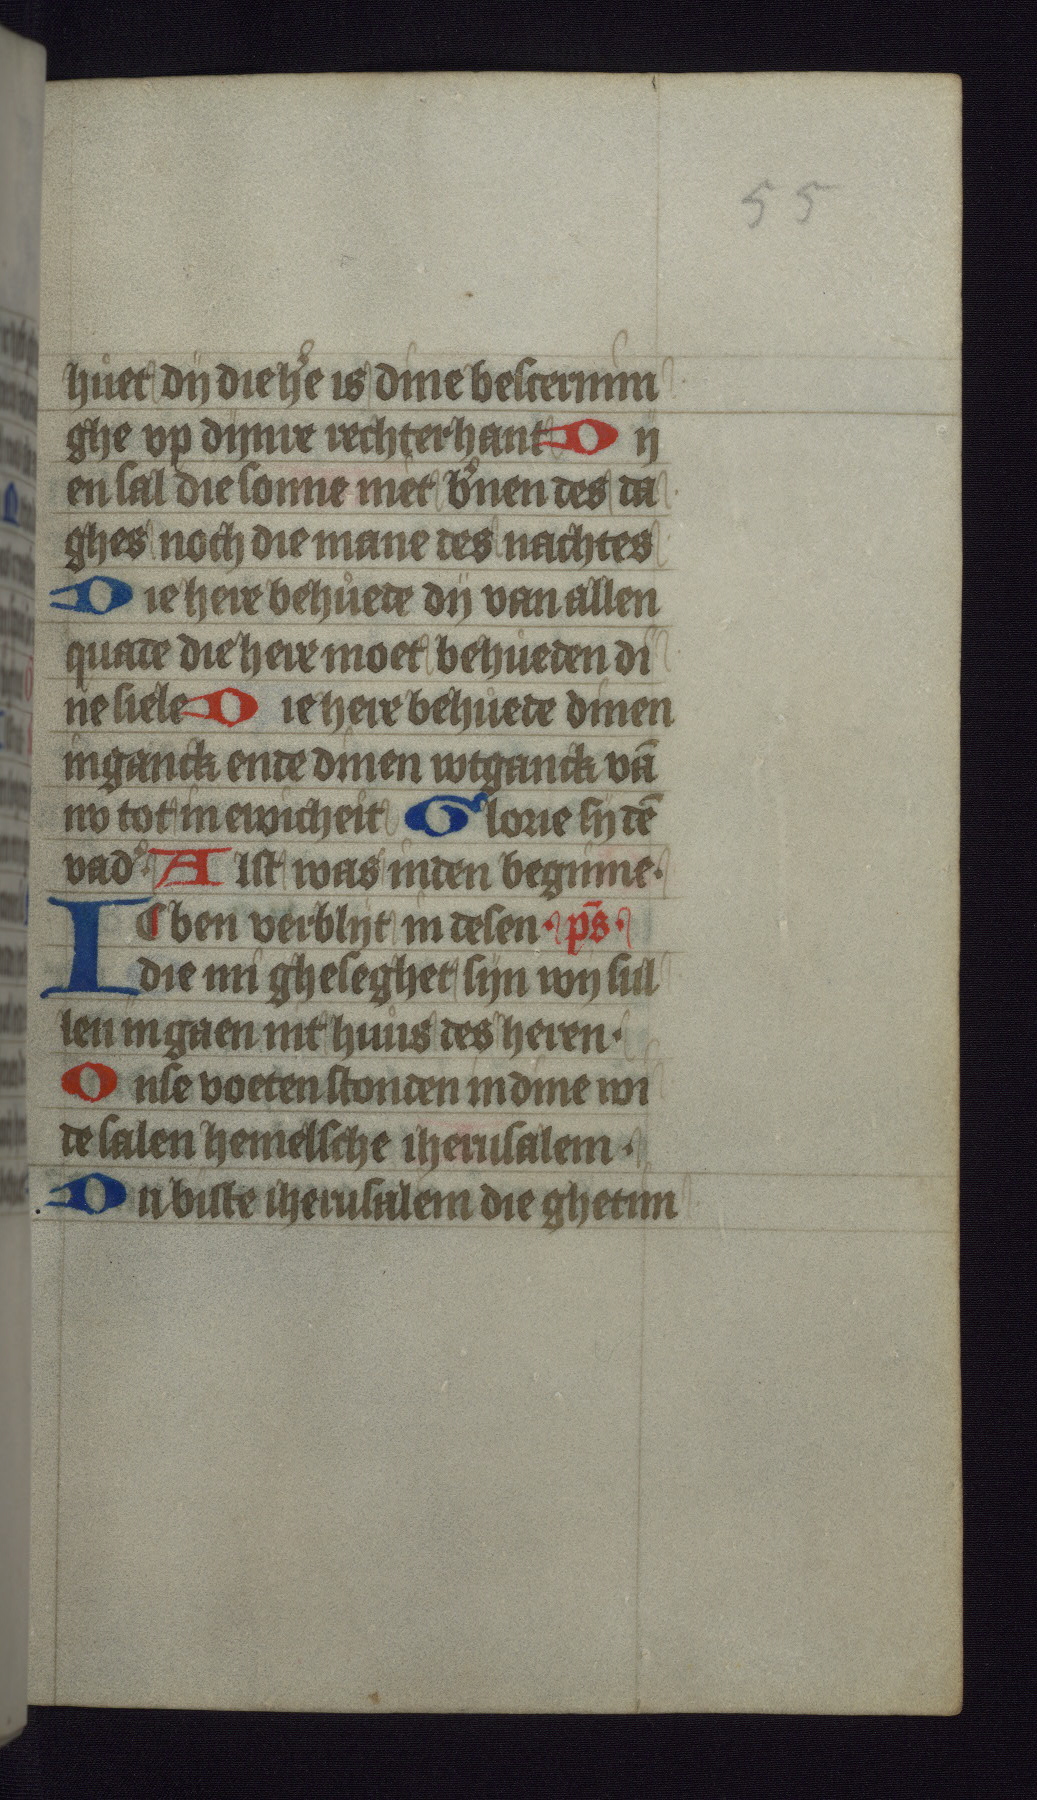 55
huet dij die he is dine beschermin
ghe vp dijnre rechterhant Dij
en sal die sonne niet b'nen des da
ghes noch die mane des nachtes
Die here behuede dij van allen
quade die here moet behueden di
ne siele Die here behuede dinen
inganck ende dinen wtganck vā
nv tot in ewicheit Glorie sij dē
vad' Alst was inden beginne·
IC ben verblijt in desen · p̄s ·
die mi gheseghet sijn wij sul
len ingaen int huus des heren·
Onse voeten stonden in dine wi
de salen hemelsche iherusalem·
Du biste iherusalem die ghetim